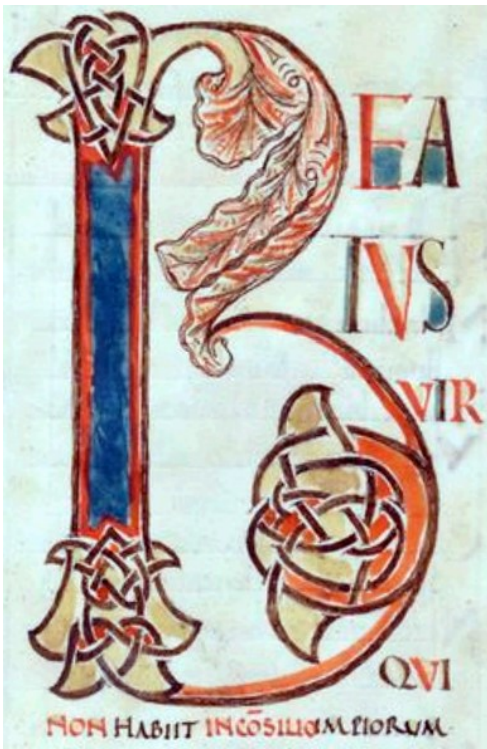 BEA
TVS
VIR
QVI
NON HABIIT IN CŌSILIO IMPIORUM